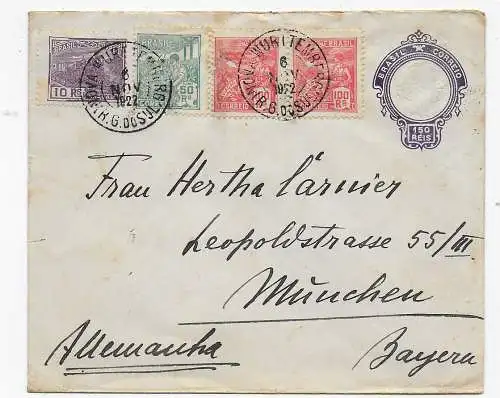 BRASIL
10 RS
60 RS
BRASIL
CORREIO
100 RS
BRASIL
100 RS
NOVA WÜRTTEMBERG
6
NOV
1922
R.G. DO SUL
NOVA WÜRTTEMBERG
6
NOV
1922
R.G. DO SUL
BRASIL CORREIO
150
REIS
Frau Hertha Carnier
Leopoldstrasse 55/III
München
Allemanha
Bayern